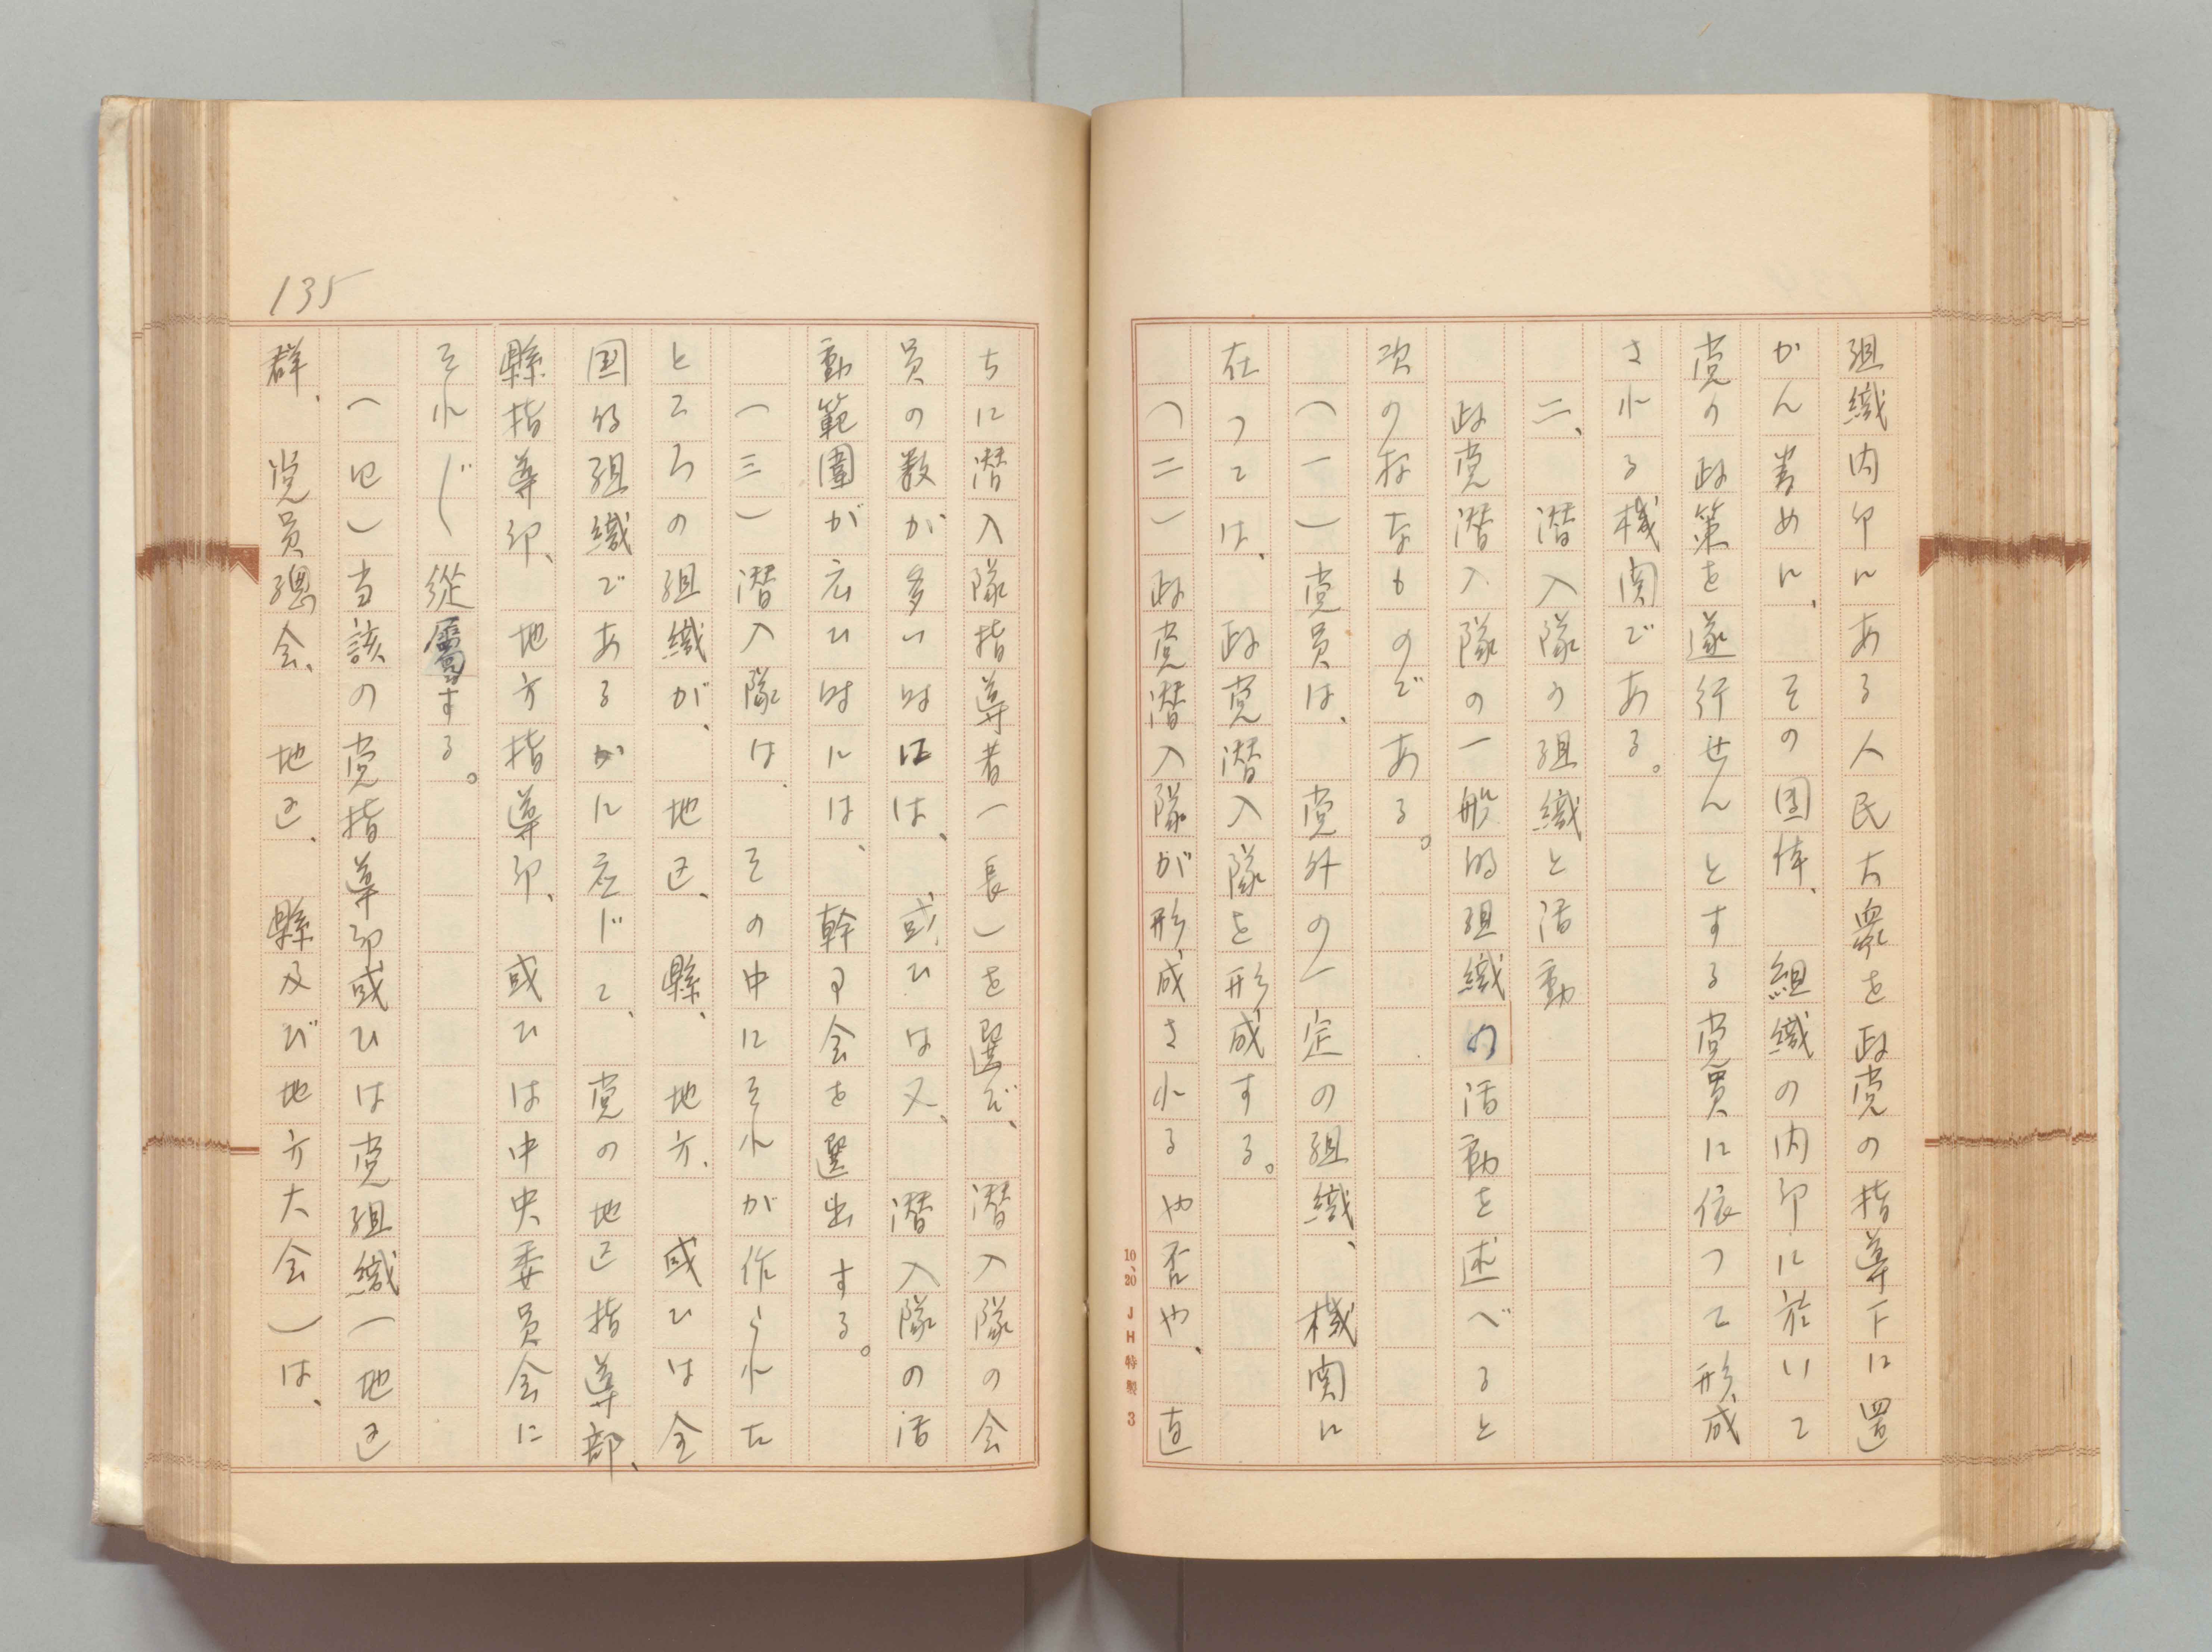 組織内部にある人民大衆を政党の指導下に置
かん為めに、その団体、組織の内部に於いて
党の政策を遂行せんとする党員に依つて形成
される機関である。
二、潜入隊の組織と活動
政党潜入隊の一般的組織の活動を述べると
次の様なものである。
(一)党員は、党外の一定の組織、機関に
在つては、政党潜入隊を形成する。
(二)政党潜入隊が形成されるや否や、直
10、20 JH特製 3
ちに潜入隊指導者(長)を選び、潜入隊の会
員の数が多い時には、或ひは又、潜入隊の活
動範囲が広ひ時には、幹事会を選出する。
(三)潜入隊は、その中にそれが作られた
ところの組織が、地区、縣、地方、或ひは全
国的組織であるかに応じて、党の地区指導部、
縣指導部、地方指導部、或ひは中央委員会に
それ〲従屬する。
(四)当該の党指導部或ひは党組織(地区
群、党員總会、地区、縣及び地方大会)は、
135